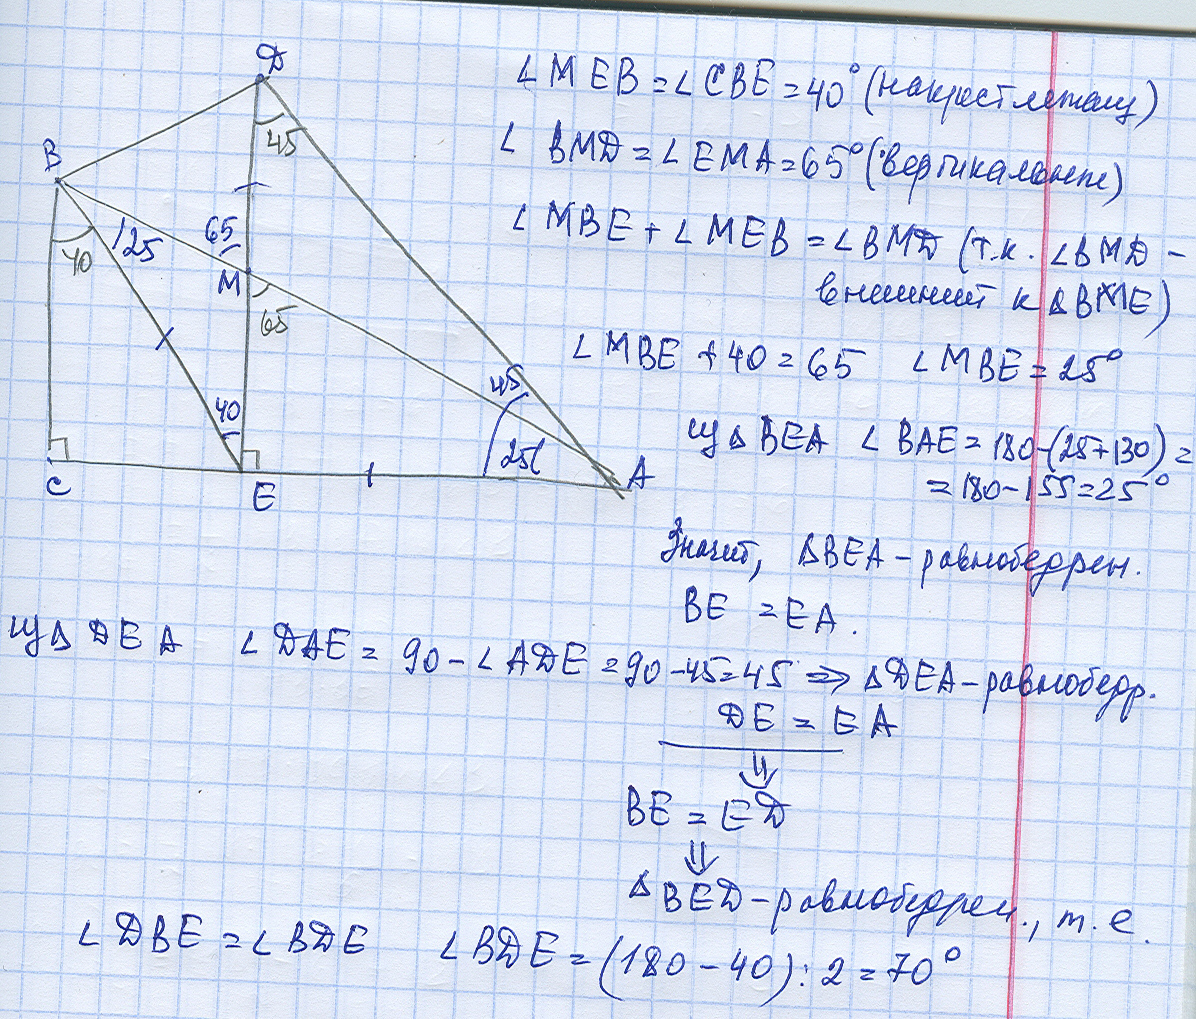 D
45
B
40
125
65
M
65
40
45
25
C
E
A
∠MEB = ∠CBE = 40° (накрест лежащ)
∠ BMD = ∠EMA = 65° (вертикальные)
∠MBE + ∠MEB = ∠BMD (т.к. ∠BMD –
внешний к ΔBME)
∠MBE + 40 = 65 ∠MBE = 25°
из Δ BEA ∠BAE = 180-(25+130) =
= 180-155=25°
Значит, ΔBEA – равнобедрен.
BE = EA.
из Δ DEA ∠DAE = 90 - ∠ADE = 90 -45=45 ⇒ ΔDEA – равнобедр.
DE = EA
⇓
BE = ED
⇓
ΔBED – равнобедрен., т.е.
∠DBE = ∠BDE ∠BDE = (180 - 40) : 2 = 70°